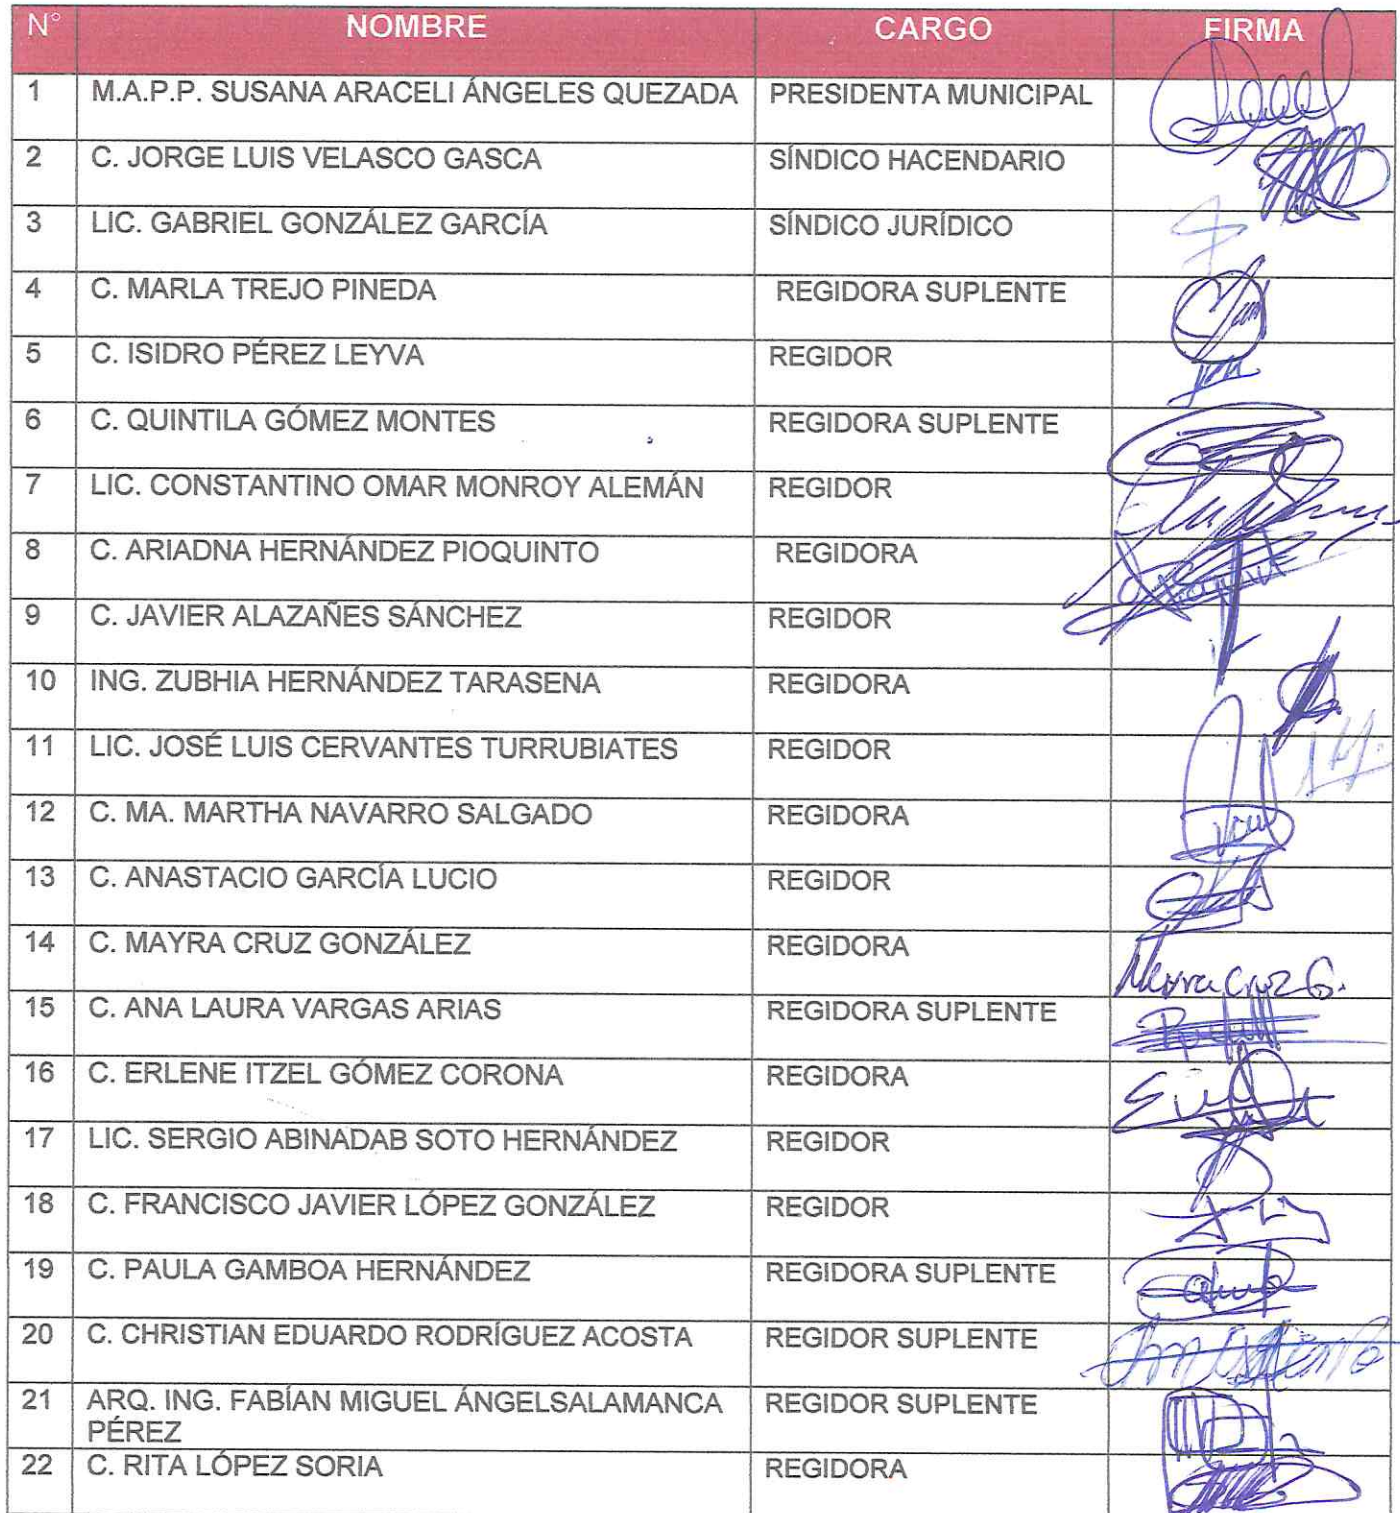 N° NOMBRE CARGO FIRMA
1 M.A.P.P. SUSANA ARACELI ÁNGELES QUEZADA PRESIDENTA MUNICIPAL
2 C. JORGE LUIS VELASCO GASCA SÍNDICO HACENDARIO
3 LIC. GABRIEL GONZÁLEZ GARCÍA SÍNDICO JURÍDICO
4 C. MARLA TREJO PINEDA REGIDORA SUPLENTE
5 C. ISIDRO PÉREZ LEYVA REGIDOR
6 C. QUINTILA GÓMEZ MONTES REGIDORA SUPLENTE
7 LIC. CONSTANTINO OMAR MONROY ALEMÁN REGIDOR
8 C. ARIADNA HERNÁNDEZ PIOQUINTO REGIDORA
9 C. JAVIER ALAZAÑES SÁNCHEZ REGIDOR
10 ING. ZUBHIA HERNÁNDEZ TARASENA REGIDORA
11 LIC. JOSÉ LUIS CERVANTES TURRUBIATES REGIDOR
12 C. MA. MARTHA NAVARRO SALGADO REGIDORA
13 C. ANASTACIO GARCÍA LUCIO REGIDOR
14 C. MAYRA CRUZ GONZÁLEZ REGIDORA Mayra Cruz G.
15 C. ANA LAURA VARGAS ARIAS REGIDORA SUPLENTE
16 C. ERLENE ITZEL GÓMEZ CORONA REGIDORA
17 LIC. SERGIO ABINADAB SOTO HERNÁNDEZ REGIDOR
18 C. FRANCISCO JAVIER LÓPEZ GONZÁLEZ REGIDOR
19 C. PAULA GAMBOA HERNÁNDEZ REGIDORA SUPLENTE
20 C. CHRISTIAN EDUARDO RODRÍGUEZ ACOSTA REGIDOR SUPLENTE
21 ARQ. ING. FABÍAN MIGUEL ÁNGELSALAMANCA REGIDOR SUPLENTE
PÉREZ
22 C. RITA LÓPEZ SORIA REGIDORA